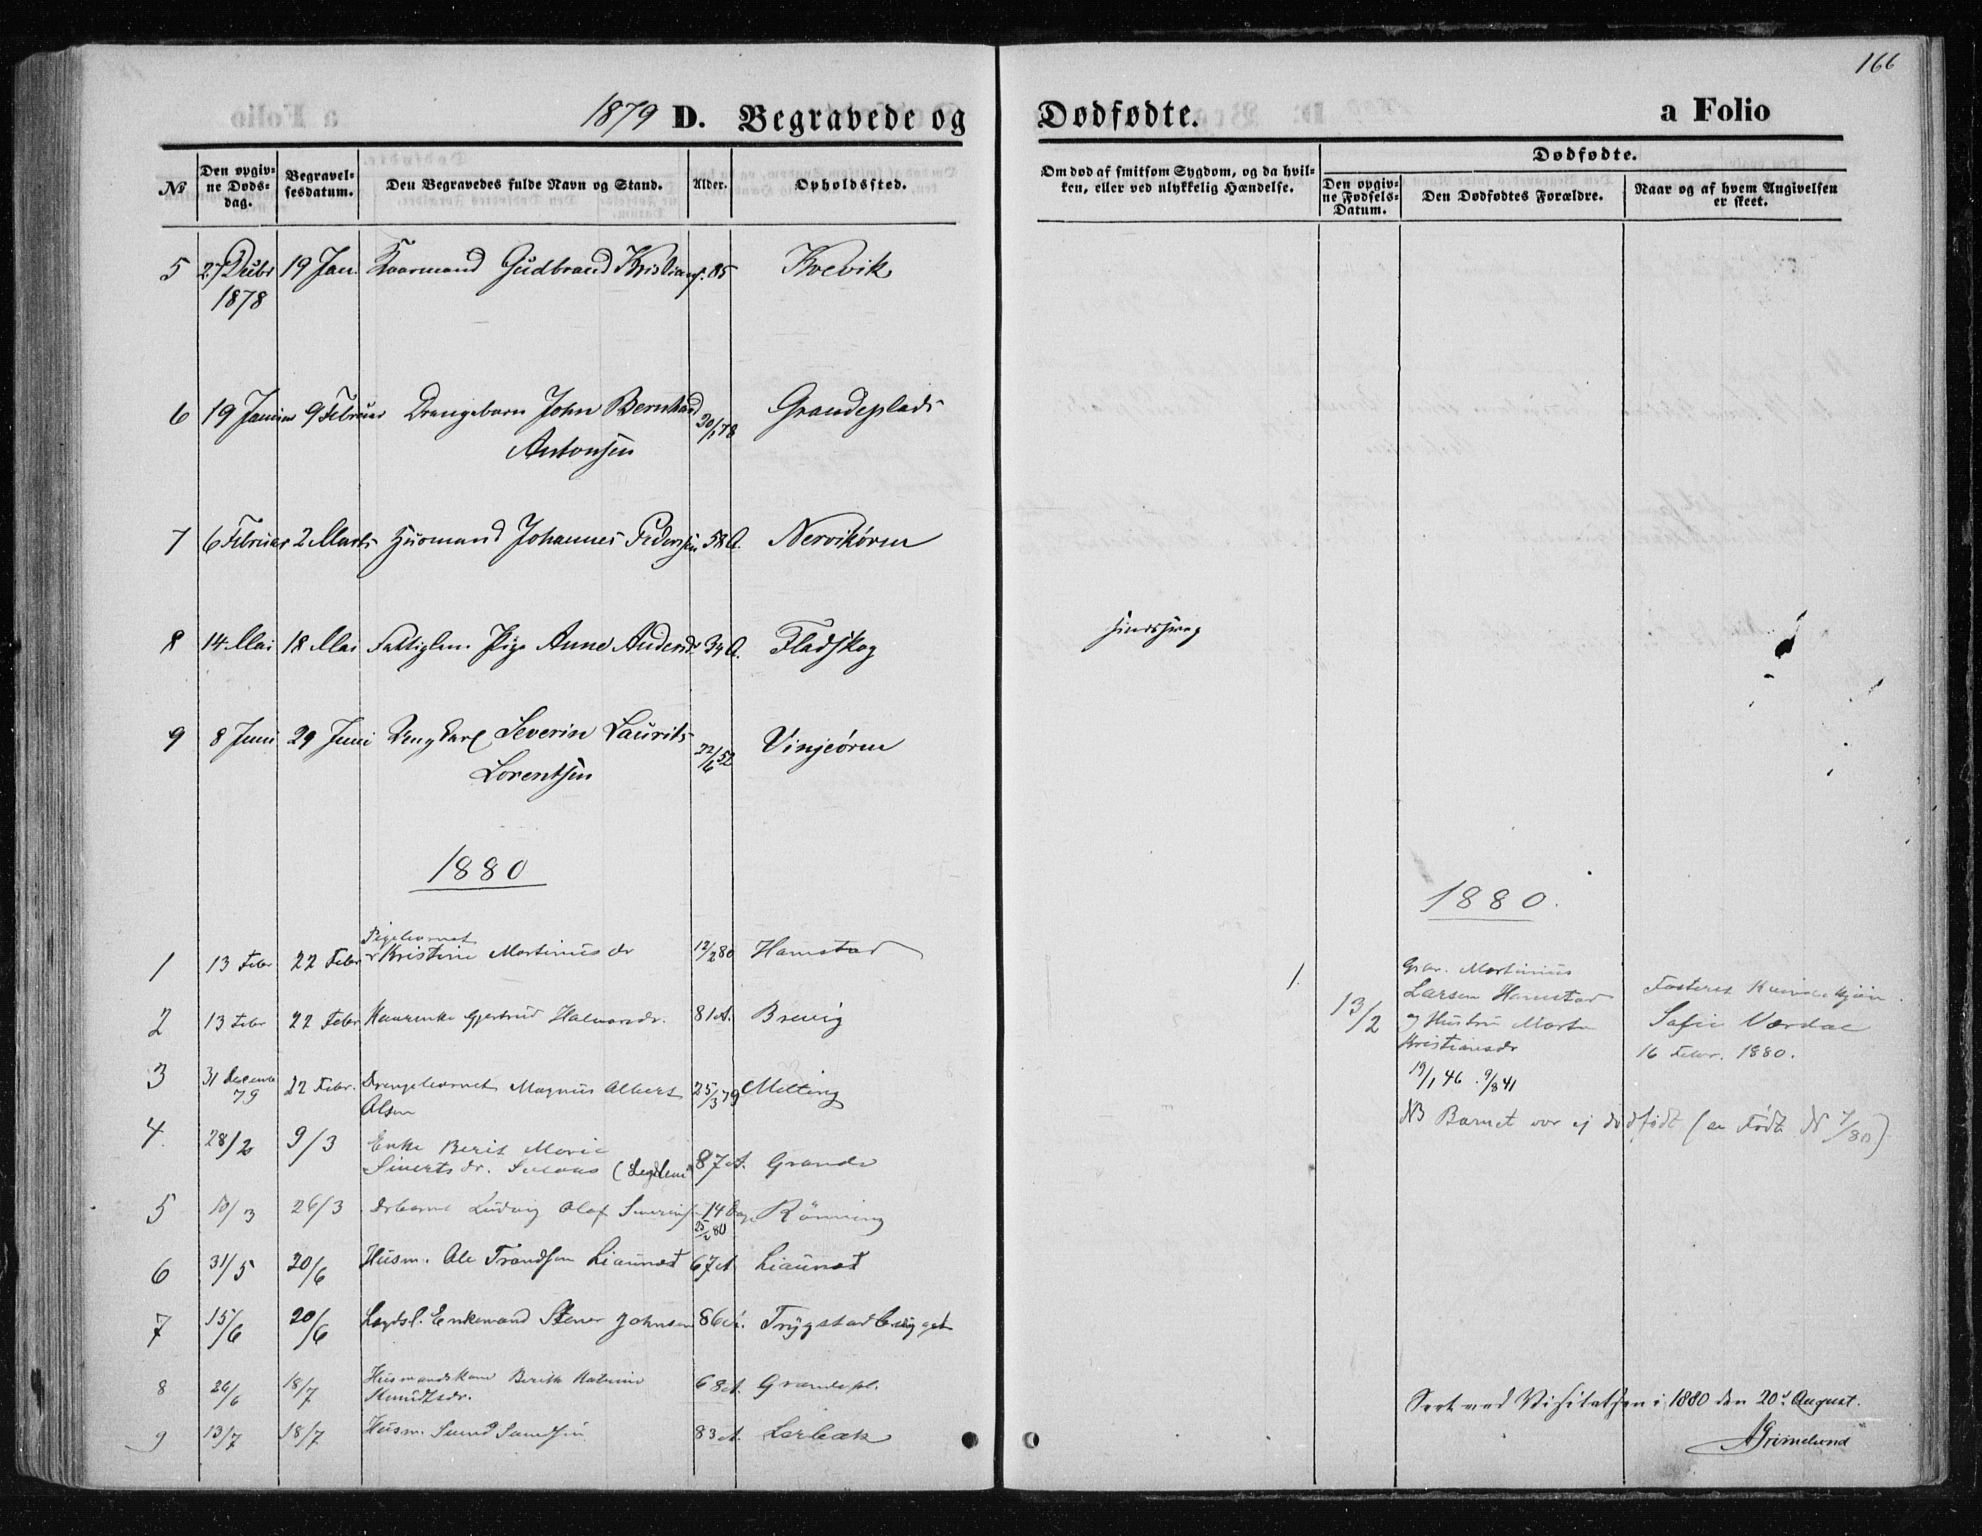 166
1879 D. Begravede og Dødfødte. a Folio
No
Den opgivne Dødsdag.
Begravelsesdatum.
Den Begravedes fulde Navn og Stand.
Alder.
Opholdssted.
Om død af smitsom Sygdom, og da hvilken, eller ved ulykkelig Hændelse.
Dødfødte.
Den opgivne Fødsels-Datum.
Den Dødfødtes Forældre.
Naar og af hvem Angivelsen er skeet.
5 27 Decbr 19 Jan. Gudbrand Kristians. 85 Kvevik
1878
6 19 Januar 9 Februar Drengebarn John Bernhard 30/1 78 Grandeplads
Antonsen
7 6 Februar 2 Marts Husmand Johannes Pedersen 58 A. Nervikøren
8 14 Mai 18 Mai Fattiglem Pige Anne Andersdr. 34 A. Fladskog
9 8 Juni 29 Juni Ungkarl Severin Laurits 22/6 52 Vinjeøren
Lorentsen
1880
1880.
1 13 Febr 22 Febr Pigebarnet Kristine Martinusdr 12/2 80 Hamstad
2 13 Febr 22 Febr Gjertrud Halvorsdr. 81 A. Brevig
3 31 Decemb 79 22 Febr. Drengebarnet Magnus Albert 25/3 79 Melting
Olsen
4. 28/2 9/3 Enke Berit Marie
Siverts dr. (Lægdlem) 87 A. Grande
5 10/3 26/3 Drbarnet Ludvig Olaf Severinsen 14 Dage Rønning
25/2 80
6 31/5 20/6 Husm. Ole Trondsen Liaunet 67 A Liaunet
7 15/6 20/6 Lægdsl. Enkemand Stener Johnsen 86 A. Trygstadbygget
8 26/6 18/7 Husmandskone Berith Katrine 68 A. Grandepl.
Knudtsdr.
9 13/7 18/7 Husm. 83 A. Lerbæk
1.
13/2
Gaar. Martinius
Larsen Hamstad
og Hustru Marta
Kristiansdr
19/1 46. 9/8 41
Sofie Værdal
16 Febr. 1880.
NB Barnet var ej dødfødt (se Født N 7/80)
Seet ved Visitatsen i 1880 den 20d August.
A Grimelund